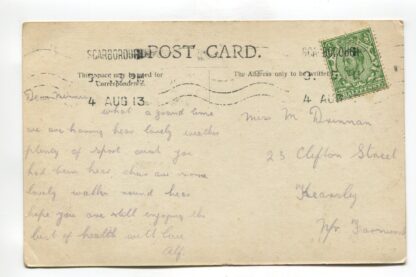 SCARBOROUGH
POST CARD.
SCARBOROUGH
This space may be used for
Correspondence.
The Address only to be written
4 AUG 13
4 AU
Dear
what a grand time
we are having hear lovely weather
plenty of sport wish you
had been hear, there are some
lovely walks round hear
hope you are still enjoying the
best of health with love
Alf.
Miss M Drinnan
23 Clifton Street
Kearsley
Nr. Farnworth